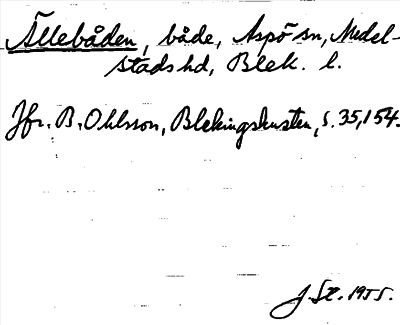 Ällebåden, både, Aspö sn, Medel-
stads hd, Blek. l.
Jfr. B. Ohlsson, Blekingskusten, s. 35, 154.
J. Sx. 1955.